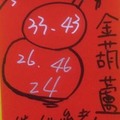 金葫蘆
33.43
26.46
24